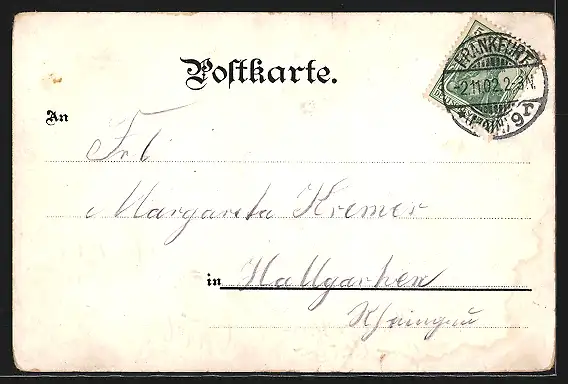 Postkarte.
FRANKFURT
2.11.02.2-3N.
(MAIN)
9
An
Frl
Margareta Kremer
in Hallgarten
Rheingau